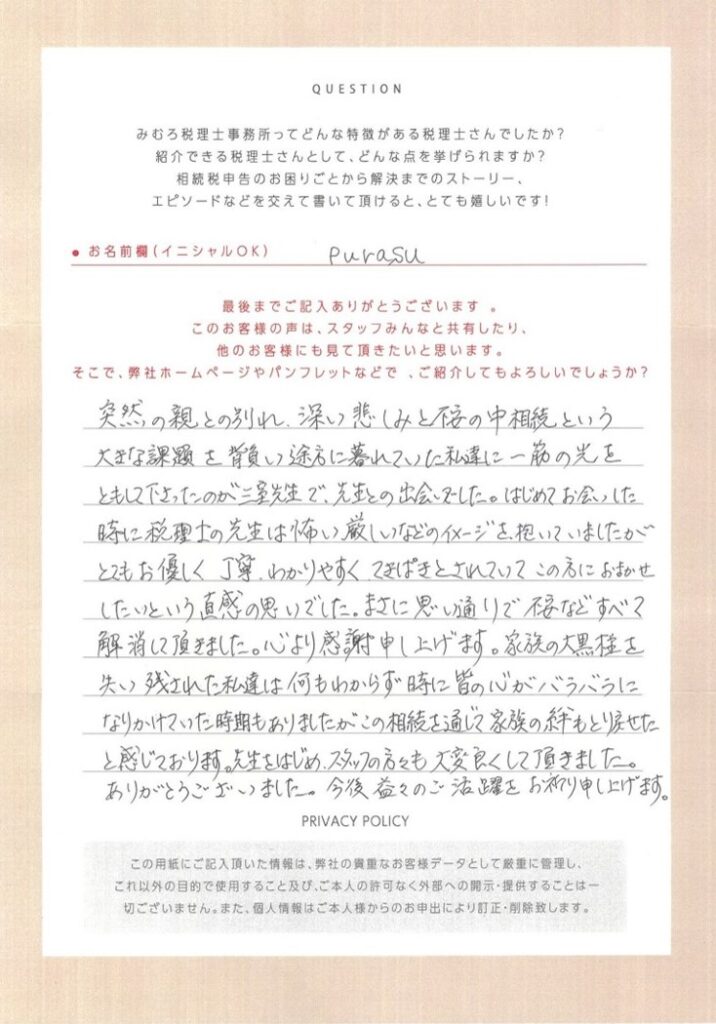 QUESTION
みむろ税理士事務所ってどんな特徴がある税理士さんでしたか?
紹介できる税理士さんとして、どんな点を挙げられますか?
相続税申告のお困りごとから解決までのストーリー、
エピソードなどを交えて書いて頂けると、とても嬉しいです!
● お名前欄(イニシャルOK) purasu
最後までご記入ありがとうございます 。
このお客様の声は、スタッフみんなと共有したり、
他のお客様にも見て頂きたいと思います。
そこで、弊社ホームページやパンフレットなどで 、ご紹介してもよろしいでしょうか?
突然の親との別れ、深い悲しみと不安の中相続という
大きな課題を背負い途方に暮れていた私達に一筋の光を
ともして下さったのが三室先生で、先生との出会いでした。はじめてお会いした
時に税理士の先生は怖い厳しいなどのイメージを抱いていましたが
とてもお優しく 丁寧、わかりやすく てきぱきとされていて この方におまかせ
したいという直感の思いでした。まさに思い通りで不安などすべて
解消して頂きました。心より感謝申し上げます。家族の大黒柱を
失い残された私達は何もわからず時に皆の心がバラバラに
なりかけていた時期もありましたがこの相続を通じて家族の絆もとり戻せた
と感じております。先生をはじめ、スタッフの方々も大変良くして頂きました。
ありがとうございました。今後益々のご活躍をお祈り申し上げます。
PRIVACY POLICY
この用紙にご記入頂いた情報は、弊社の貴重なお客様データとして厳重に管理し、
これ以外の目的で使用すること及び、ご本人の許可なく外部への開示・提供することは一
切ございません。また、個人情報はご本人様からのお申出により訂正・削除致します。